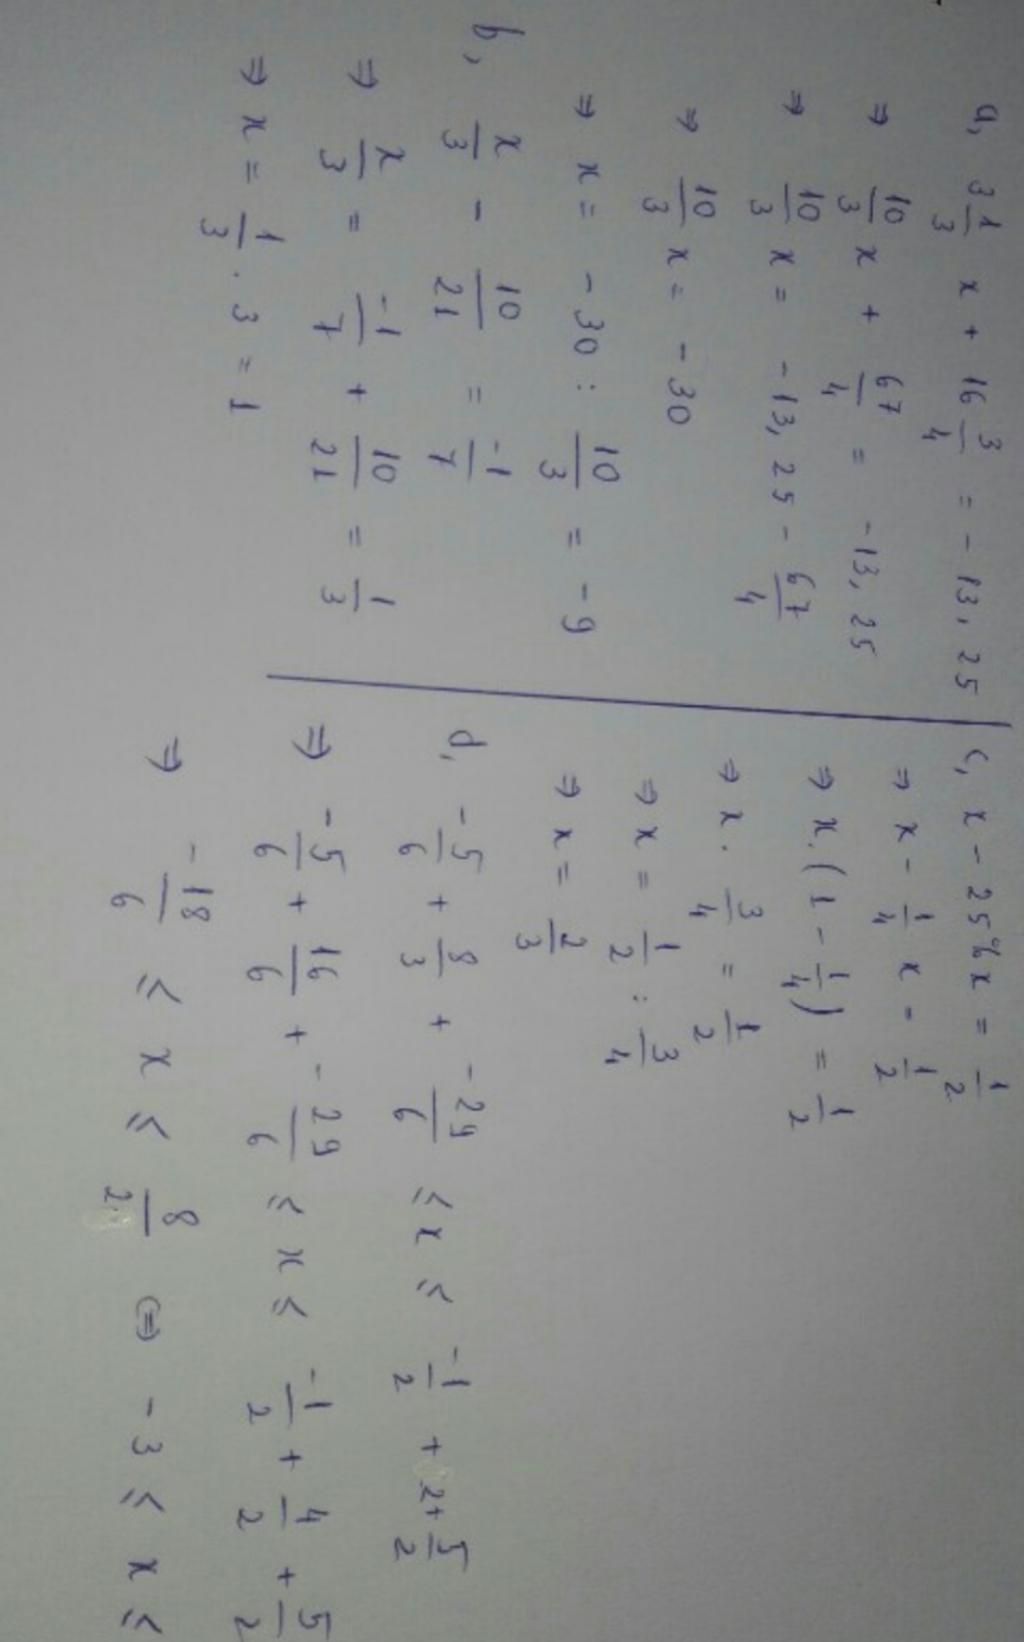 a, 3 1/3 x + 16 3/4 = -13,25
⇒ 10/3 x + 67/4 = -13,25
⇒ 10/3 x = -13,25 - 67/4
⇒ 10/3 x = -30
⇒ x = -30 : 10/3 = -9
b, x/3 - 10/21 = -1/7
⇒ x/3 = -1/7 + 10/21 = 1/3
⇒ x = 1/3 . 3 = 1
c, x - 25% x = 1/2
⇒ x - 1/4 x = 1/2
⇒ x. (1 - 1/4) = 1/2
⇒ x. 3/4 = 1/2
⇒ x = 1/2 : 3/4
⇒ x = 2/3
d, -5/6 + 8/3 + -29/6 ≤ x ≤ -1/2 + 2 + 5/2
⇒ -5/6 + 16/6 + -29/6 ≤ x ≤ -1/2 + 4/2 + 5/2
⇒ -18/6 ≤ x ≤ 8/2 ⇔ -3 ≤ x ≤